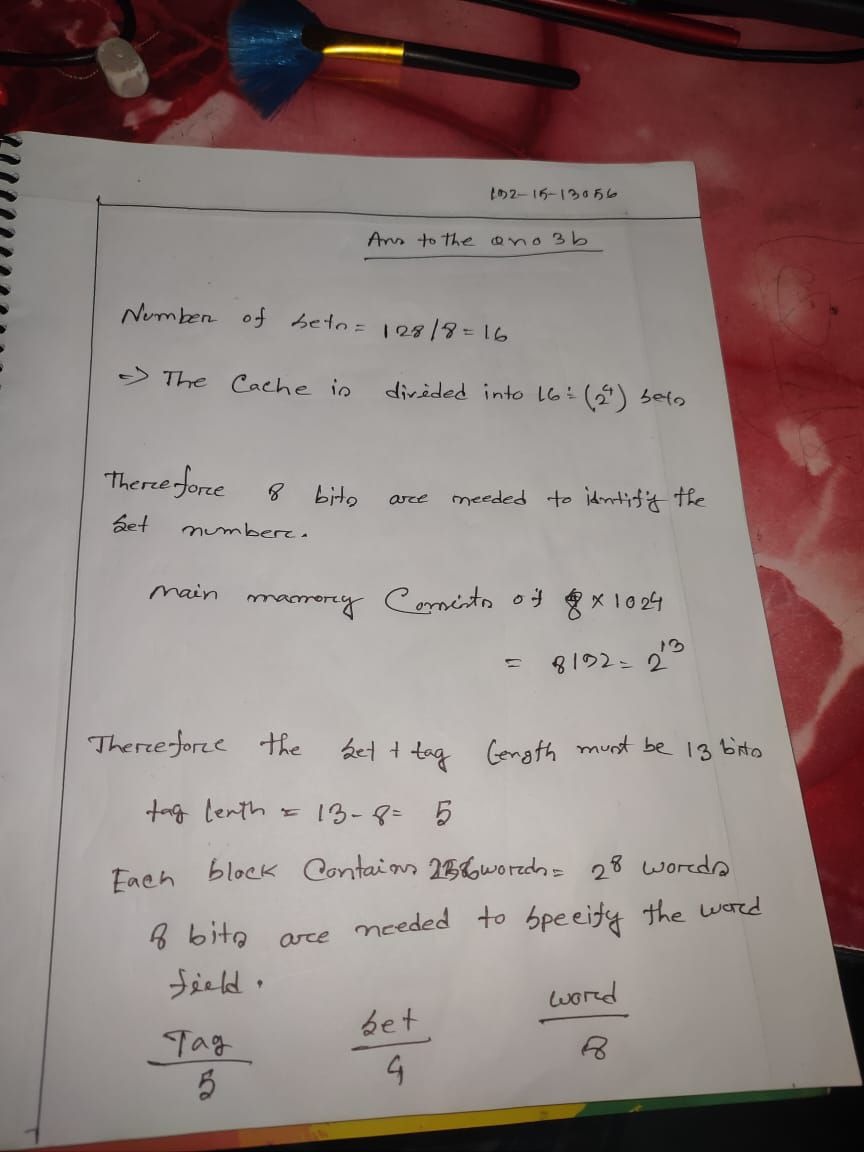 192-15-13056
Ans to the Q no 3b
Number of sets = 128/8 = 16
=> The Cache is divided into 16 = (2^4) sets
Therefore 8 bits are needed to identify the
set number.
Main mamory Consists of 8 × 1024
= 8192 = 2^13
Therefore the set + tag length must be 13 bits
tag lenth = 13 - 8 = 5
Each block Contains 256 words = 2^8 words
8 bits are needed to specify the word
field.
Tag set word
5 4 8